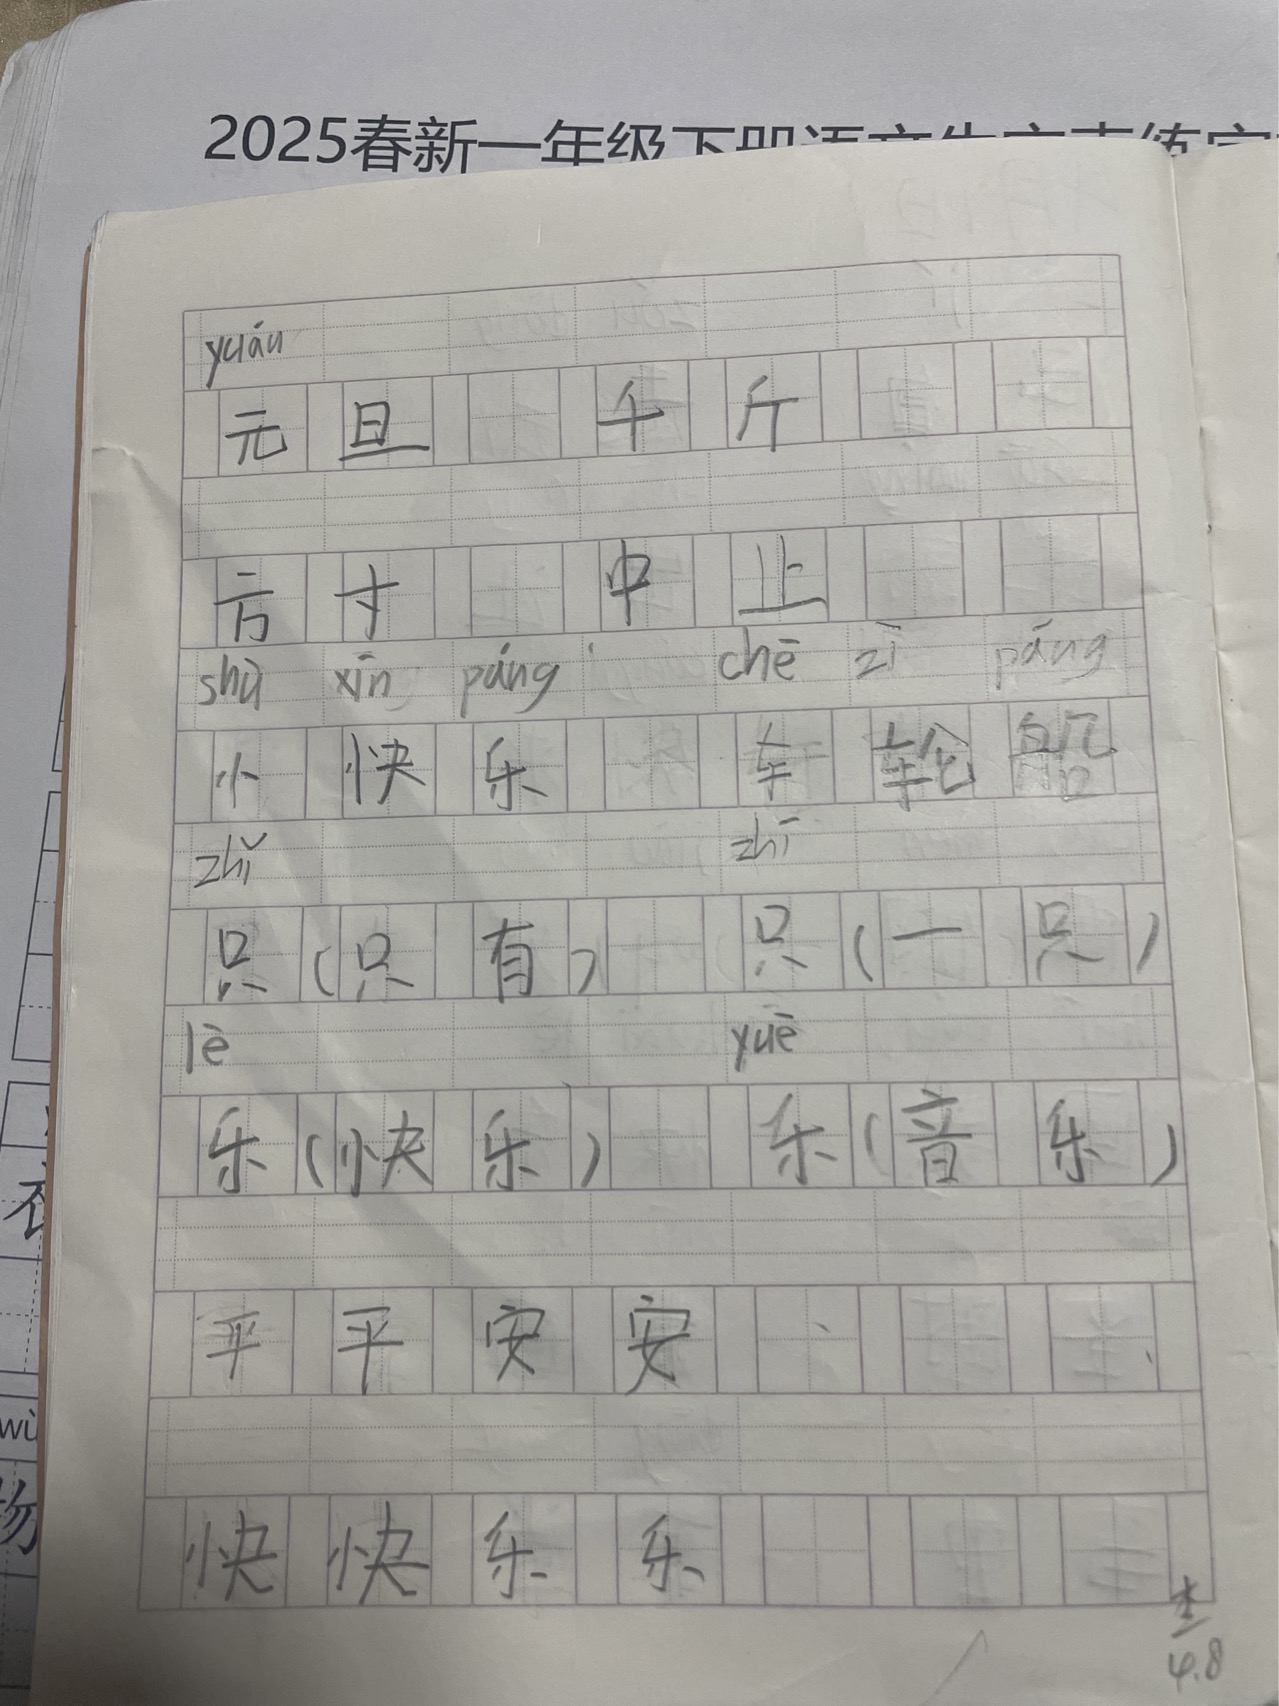 2025春新一年级下册语文生字表练字
yuán
元旦 千斤
方寸 中止
shù xīn páng chē zì páng
忄快乐 车轮船
zhǐ zhī
只(只有) 只(一只)
lè yuè
乐(快乐) 乐(音乐)
平平安安
快快乐乐
wù
物
查
4.8